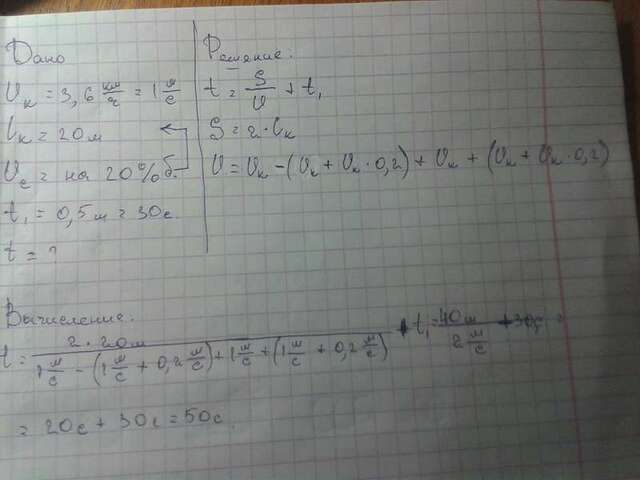 Дано
Vк = 3,6 км/ч = 1 м/с
lк = 20 м
Vс = на 20% б.
t₁ = 0,5 м = 30 с
t = ?
Решение:
t = S/V + t₁
S = 2·lк
V = Vк - (Vк + Vк · 0,2) + Vк + (Vк + Vк · 0,2)
Вычисление.
t = 2·20м / (1 м/с - (1 м/с + 0,2 м/с) + 1 м/с + (1 м/с + 0,2 м/с)) + t₁ = 40м / 2 м/с + 30с =
= 20с + 30с = 50с.